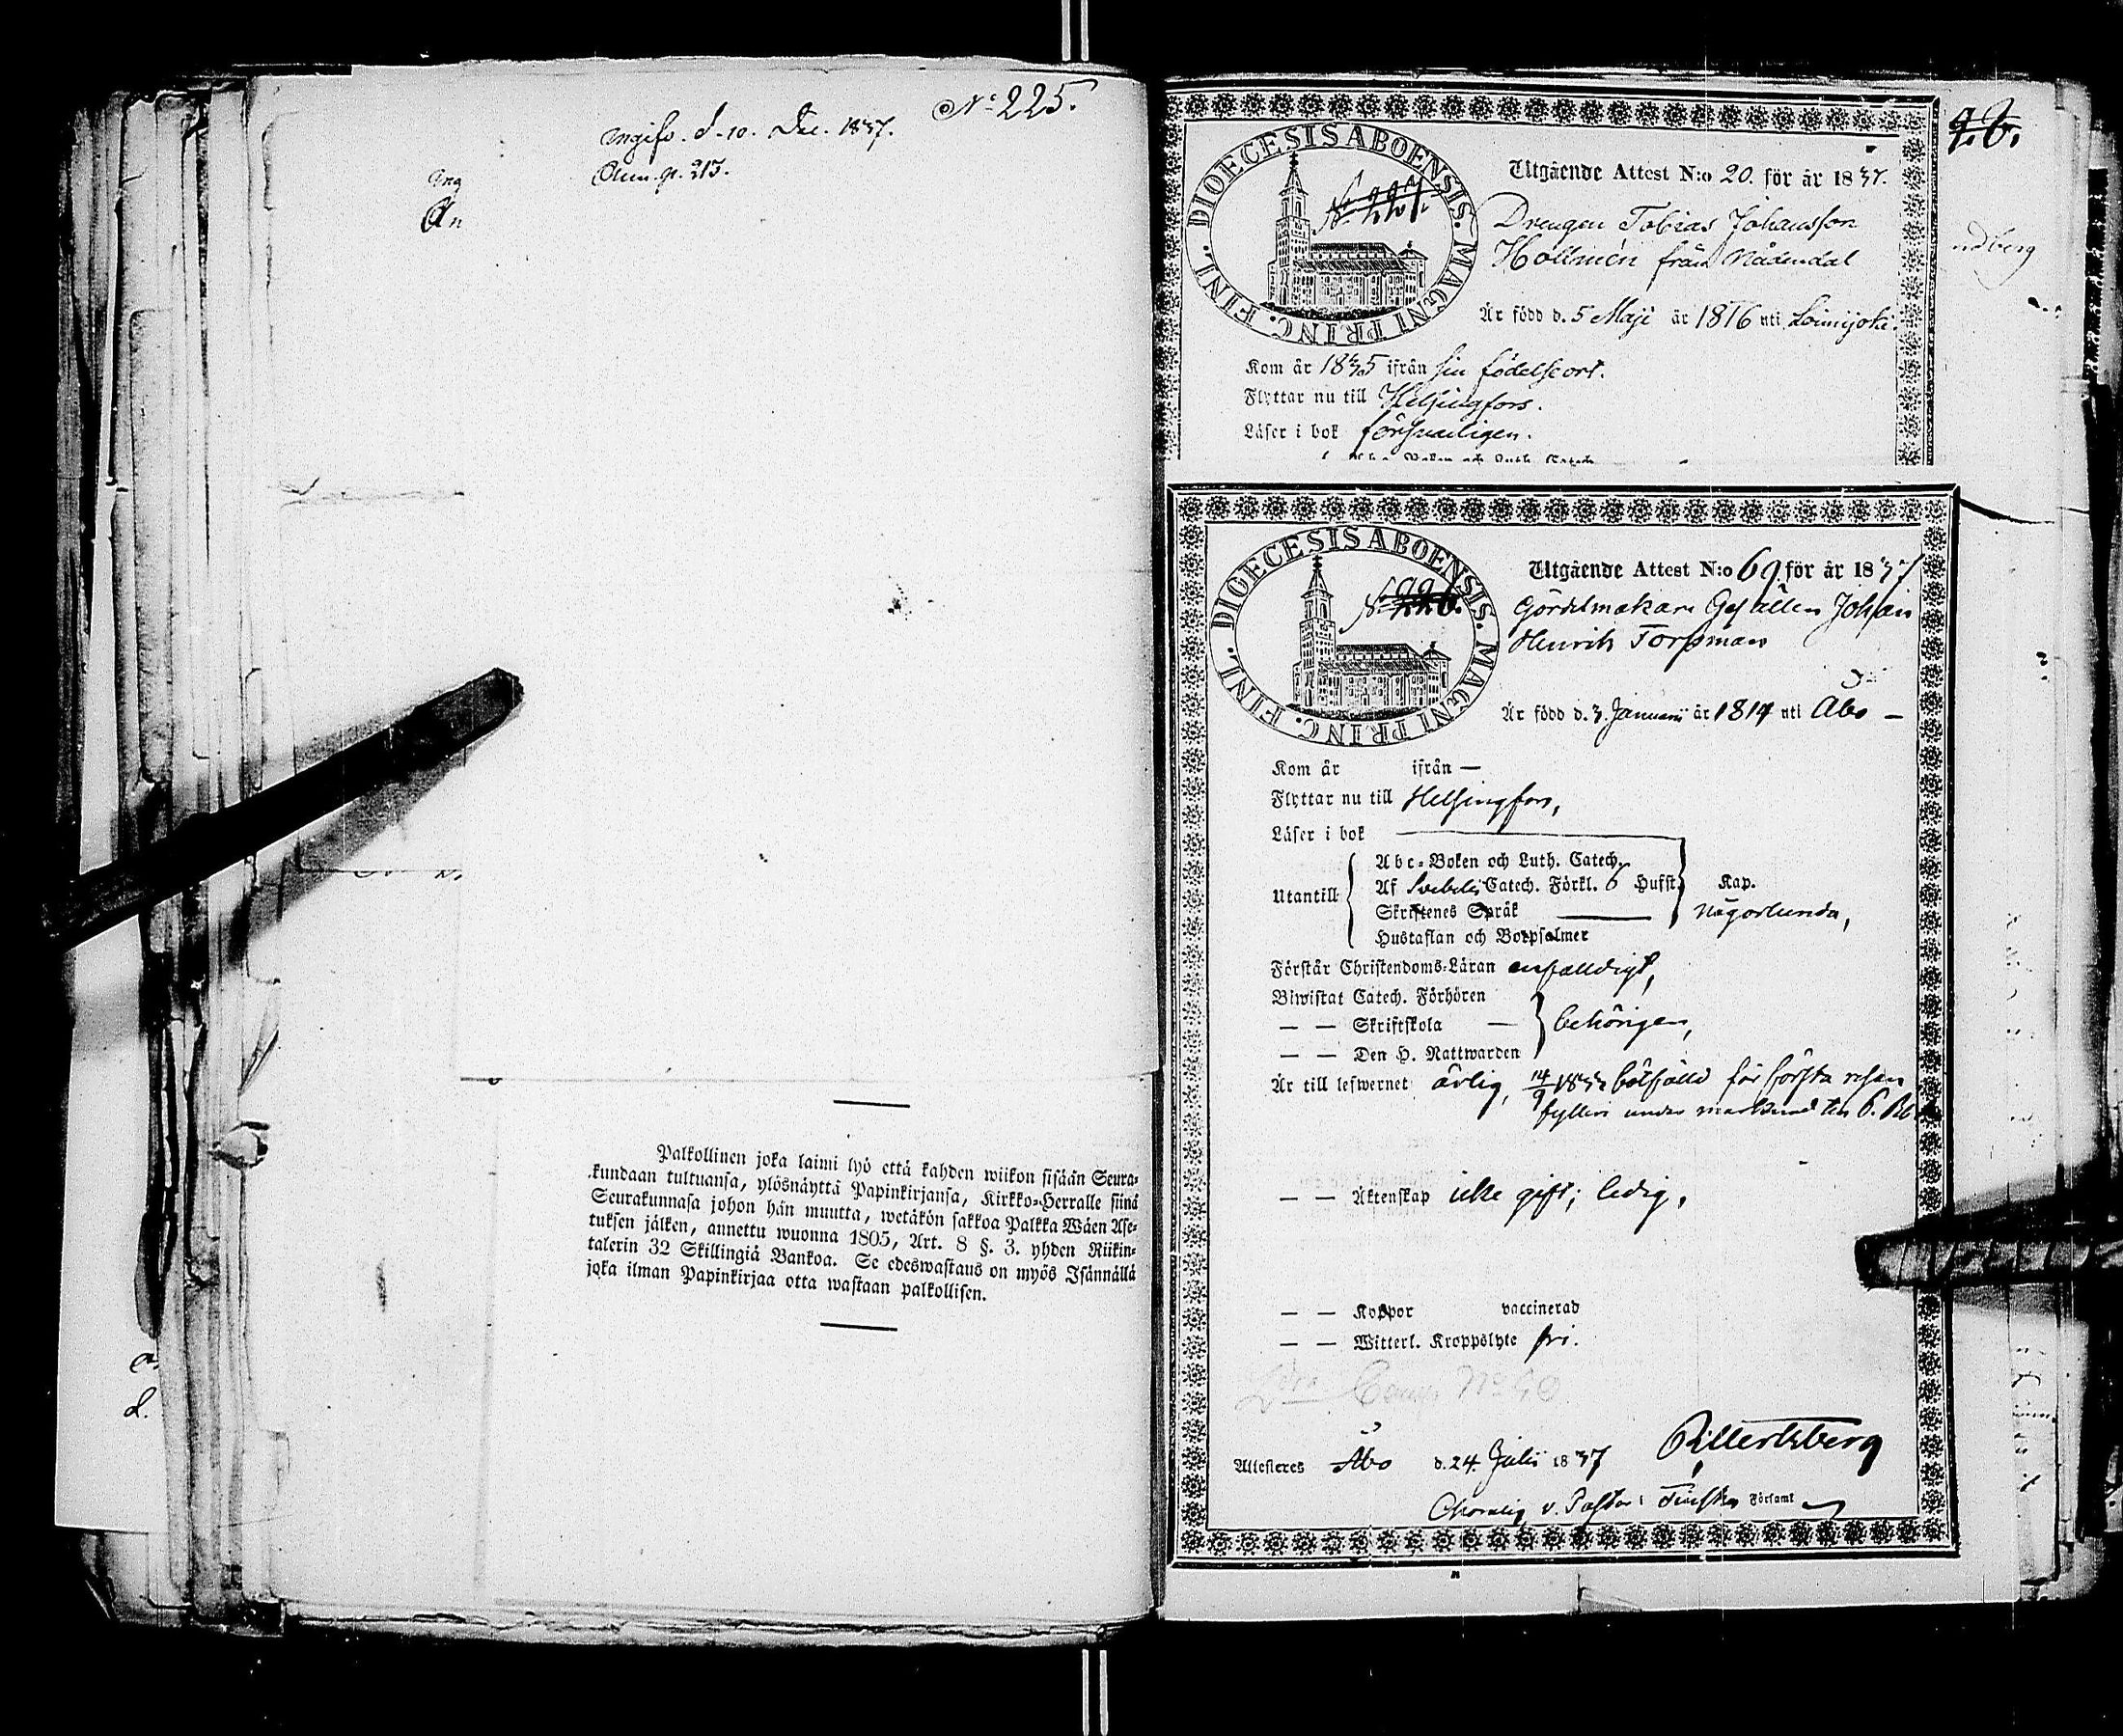 No 225.
Ingifv. d. 10. Dec. 1837.
Ann. p. 213.
Ing
An
Palkollinen joka laimi lyö että kahden wiikon sisään Seura-
kundaan tultuansa, ylösnäyttä Papinkirjansa, Kirkko-Herralle siinä
Seurakunnasa johon hän muutta, wetäkön sakkoa Palkka Wäen Ase-
tuksen jälken, annettu wuonna 1805, Art. 8 §. 3. yhden Riikin-
talerin 32 Skillingiä Bankoa. Se edeswastaus on myös Isännällä
joka ilman Papinkirjaa otta wastaan palkollisen.
DIOECESIS ABOENSIS. MAGNI PRINC. FINL.
Utgående Attest N:o 20. för år 1837.
Drengen Tobias Johansson
Hollmén från Nådendal
Är född d. 5 Maji år 1816 uti Loimijoki.
Kom år 1835 ifrån sin födelseort.
Flyttar nu till Helsingfors.
Läser i bok försvarligen.
Abc-Boken och Luth. Catech.
ndberg
DIOECESIS ABOENSIS. MAGNI PRINC. FINL.
No 226.
Utgående Attest N:o 69 för år 1837
Gördelmakare Gesällen Johan
Henrik Forsman
Är född d. 3. Januarii år 1814 uti Åbo —
Kom år ifrån —
Flyttar nu till Helsingfors,
Läser i bok
Abc-Boken och Luth. Catech.
Utantill Af Svebelii Catech. Förkl. 6 Hufst. Kap.
Skriftenes Språk någorlunda,
Hustaflan och Botpsalmer
Förstår Christendoms-Läran enfalldigt,
Biwistat Catech. Förhören
— — Skriftskola — behörigen,
— — Den H. Nattwarden
Är till lefwernet ärlig, 14/9 1833 bötfälld för första resan
fylleri under marknad
— — Äktenskap icke gift; ledig.
— — Koppor vaccinerad
— — Witterl. Kroppslyte fri.
No 40
Attesteres Åbo d. 24. Julii 1837
v. Pastor i Finska Församl